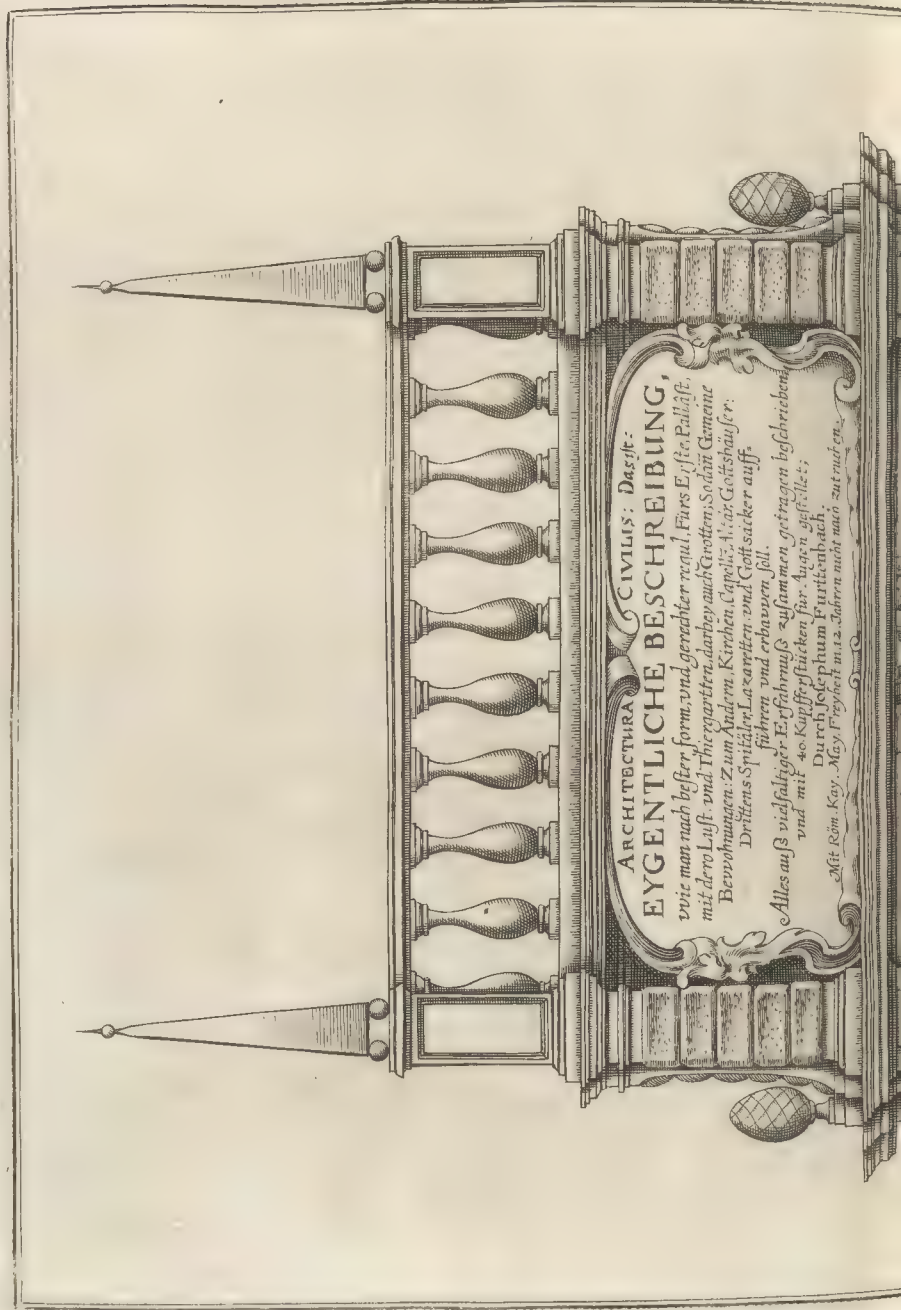 ARCHITECTURA CIVILIS: Das ist:
EYGENTLICHE BESCHREIBUNG,
wie man nach bester form, und gerechter regul, Fürs Erste, Palläst,
mit dero Lust: und Thiergärtten, darbey auch Grotten; So dañ Gemeine
Bewohnungen: Zum Andern, Kirchen, Capellē, Altär, Gottshäuser:
Drittens Spitäler, Lazaretten, und Gottsäcker auff-
führen und erbawen soll.
Alles auß vielfaltiger Erfahrnuß zusammen getragen beschrieben,
und mit 40. Kupfferstücken für Augen gestellet;
Durch Josephum Furttenbach.
Mit Röm. Kay. May. Freyheit in 12. Jahren nicht nach zutrucken.